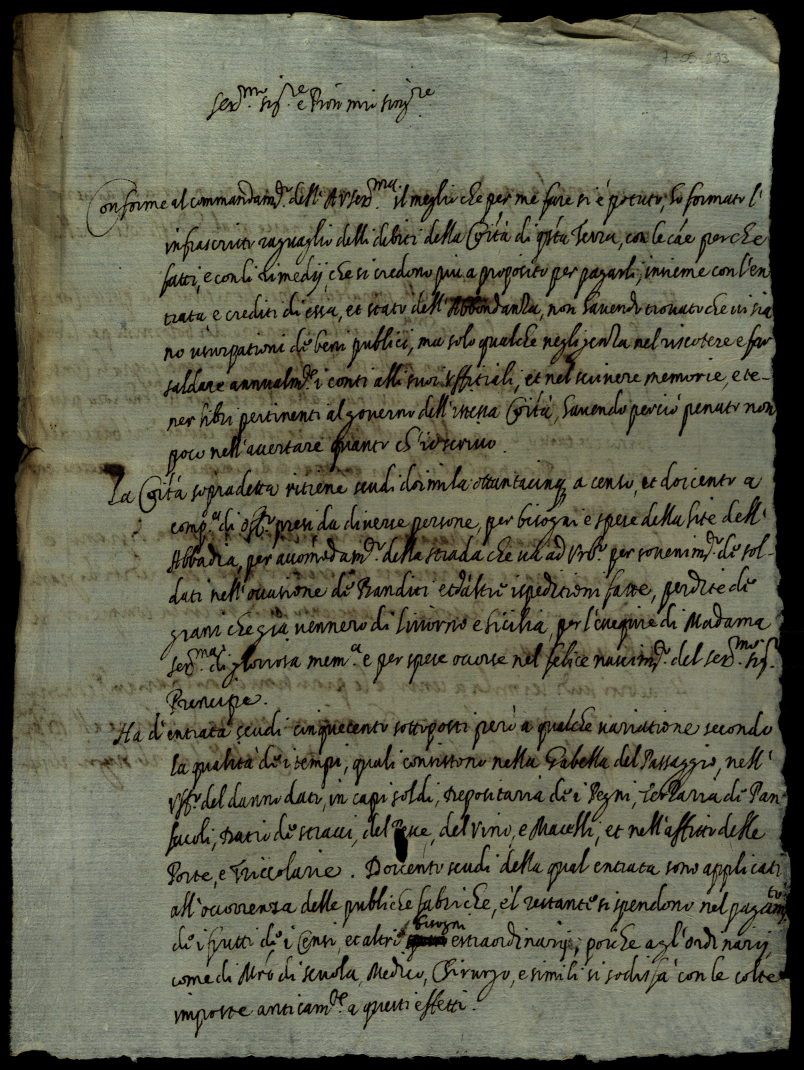 Ser.mo sig.re e Pron mio sing.re
Conforme al commandam.to dell'A V Ser.ma il meglio che per me fare si è potuto, ho formato l'
infrascritto raguaglio delli debiti della Cõità di q̃sta Terra, con le cãe perche
fatti, e con li rimedij, che si credono piu a proposito per pagarli, insieme con l'en
trata e crediti di essa, et stato dell'Abbondanza, non havendo trovato che vi sia
no usurpationi de beni publici, ma solo qualche negligenza nel riscotere e far
saldare annualm.te i conti alli suoi Uffitiali, et nel scrivere memorie, e te-
ner libri pertinenti al governo dell'istessa Cõità, havendo perciò penato non
poco nell'accertare quanto ch'io scrivo.
La Cõità sopradetta ritiene scudi doimila ottantacinq3 a censo, et doicento a
comp.a di off.o presi da diverse persone, per bisogni e spese della lite dell'
Abbadia, per accõmodam.to della strada che va ad Urb.o per sovenim.to de sol-
dati nell'occasione de Banditi et d'altre ispeditioni fatte, perdite de
grani che già vennero di Livorno e Sicilia, per l'essequie di Madama
Ser.ma di gloriosa mem.a e per spese occorse nel felice nascim.to del Ser.mo Sig.r
Principe.
Ha d'entrata scudi cinquecento sottoposti però a qualche variatione secondo
la qualità de i tempi, quali consistono nella Gabella del Passaggio, nell'
Uff.o del danno dato, in capi soldi, Depositaria de i Pegni, Terraria di Pan
fucoli, Datio de stracci, del Pesce, del vino, e Macelli, et nell'affitto delle
Porte, e Triccolarie. Doicento scudi della qual entrata sono applicati
all'occorrenza delle publiche fabriche, e'l restante si spendono nel pagam.to
de i frutti de i Censi, et altri bisogni estraordinarij, poiche agl'ordinarij,
come di Mrõ di scuola, Medico, Chirurgo, e simili si sodisfà con le colte
imposte anticam.te a questi effetti.